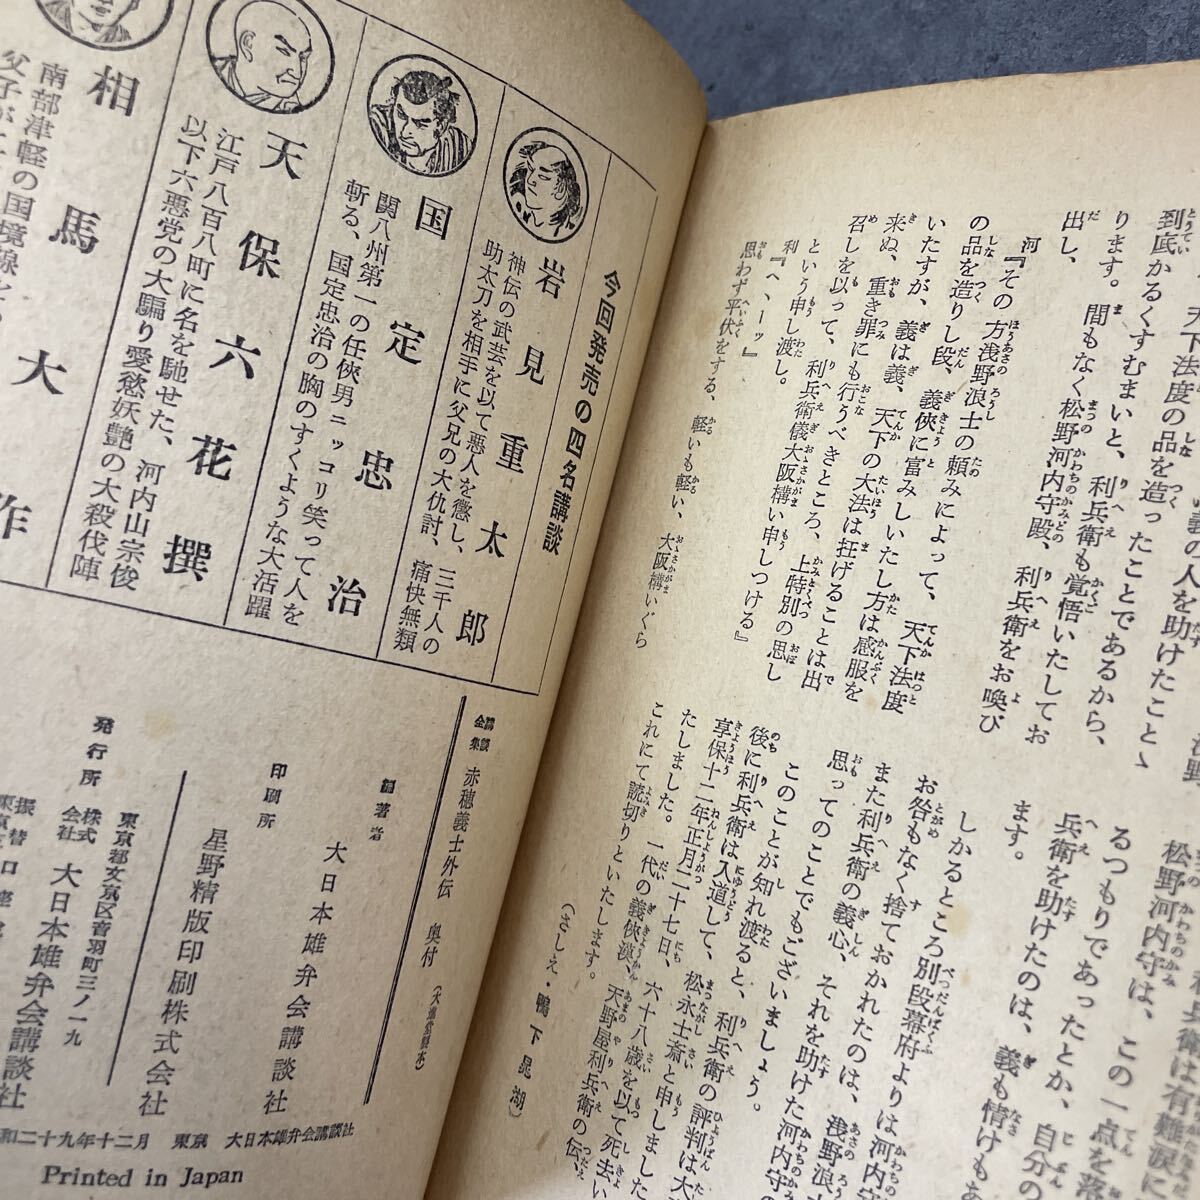 天下法度の品を造った
義の人を助けたことゝ
到底かるくすむまいと、利兵衛も覚悟いたしてお
ります。間もなく松野河内守殿、利兵衛をお喚び
出し、
河『その方浅野浪士の頼みによって、天下法度
の品を造りし段、義俠に富みしいたし方は感服を
いたすが、義は義、天下の大法は枉げることは出
来ぬ、重き罪にも行うべきところ、上特別の思し
召しを以って、利兵衛儀大阪構い申しつける』
という申し渡し。
利『ヘ、ーッ』
思わず平伏をする、軽いも軽い、大阪構いぐら
松野河内守は、この一点を
るつもりであったとか、自分の
兵衛を助けたのは、義も情けもあ
ます。
しかるところ別段幕府よりは河内守
お咎もなく捨ておかれたのは、浅野浪士
また利兵衛の義心、それを助けた河内守の
思ってのことでもございましょう。
このことが知れ渡ると、利兵衛の評判は大
後に利兵衛は入道して、松永士斎と申しました
享保十二年正月二十七日、六十八歳を以て死去い
たしました。一代の義俠漢、天野屋利兵衛の伝、
これにて読切りといたします。
(さしえ・鴨下晁湖)
今回発売の四名講談
岩見重太郎
神伝の武芸を以て悪人を懲し、三千人の
助太刀を相手に父兄の大仇討、痛快無類
国定忠治
関八州第一の任俠男ニッコリ笑って人を
斬る、国定忠治の胸のすくような大活躍
天保六花撰
江戸八百八町に名を馳せた、河内山宗俊
以下六悪党の大騙り愛慾妖艶の大殺伐陣
相馬大作
南部津軽の国境線
父子が
講談全集 赤穂義士外伝 奥付 (大進堂製本)
編著者 大日本雄弁会講談社
印刷所 星野精版印刷株式会社
発行所 東京都文京区音羽町三ノ一九
株式会社 大日本雄弁会講談社
振替口座
東京
和二十九年十二月 東京 大日本雄弁会講談社
Printed in Japan